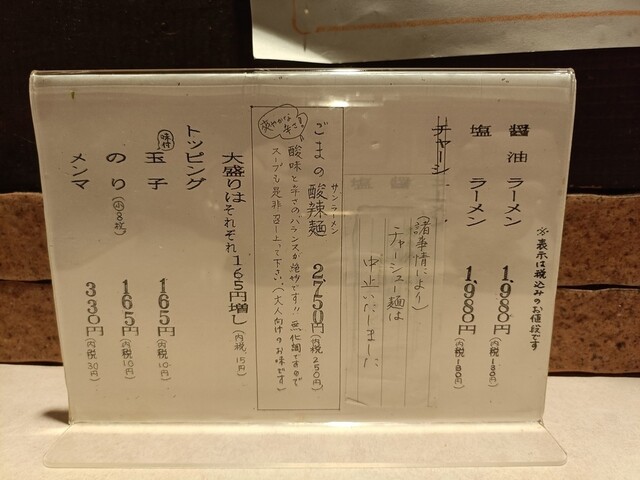 ※表示は税込みのお値段です
醤油ラーメン 1,980円(内税180円)
塩ラーメン 1,980円(内税180円)
チャーシ
(諸事情により)
チャーシュー麺は
中止いたしました
ごまの酸辣麺 サンラーメン 2,750円(内税250円)
爽やかな辛さ!
酸味と辛さのバランスが絶妙です!!無化調ですので
スープも是非召し上って下さい。(大人向けのお味です)
大盛りはそれぞれ165円増し(内税15円)
トッピング
味付玉子 165円(内税10円)
のり(8枚) 165円(内税10円)
メンマ 330円(内税30円)